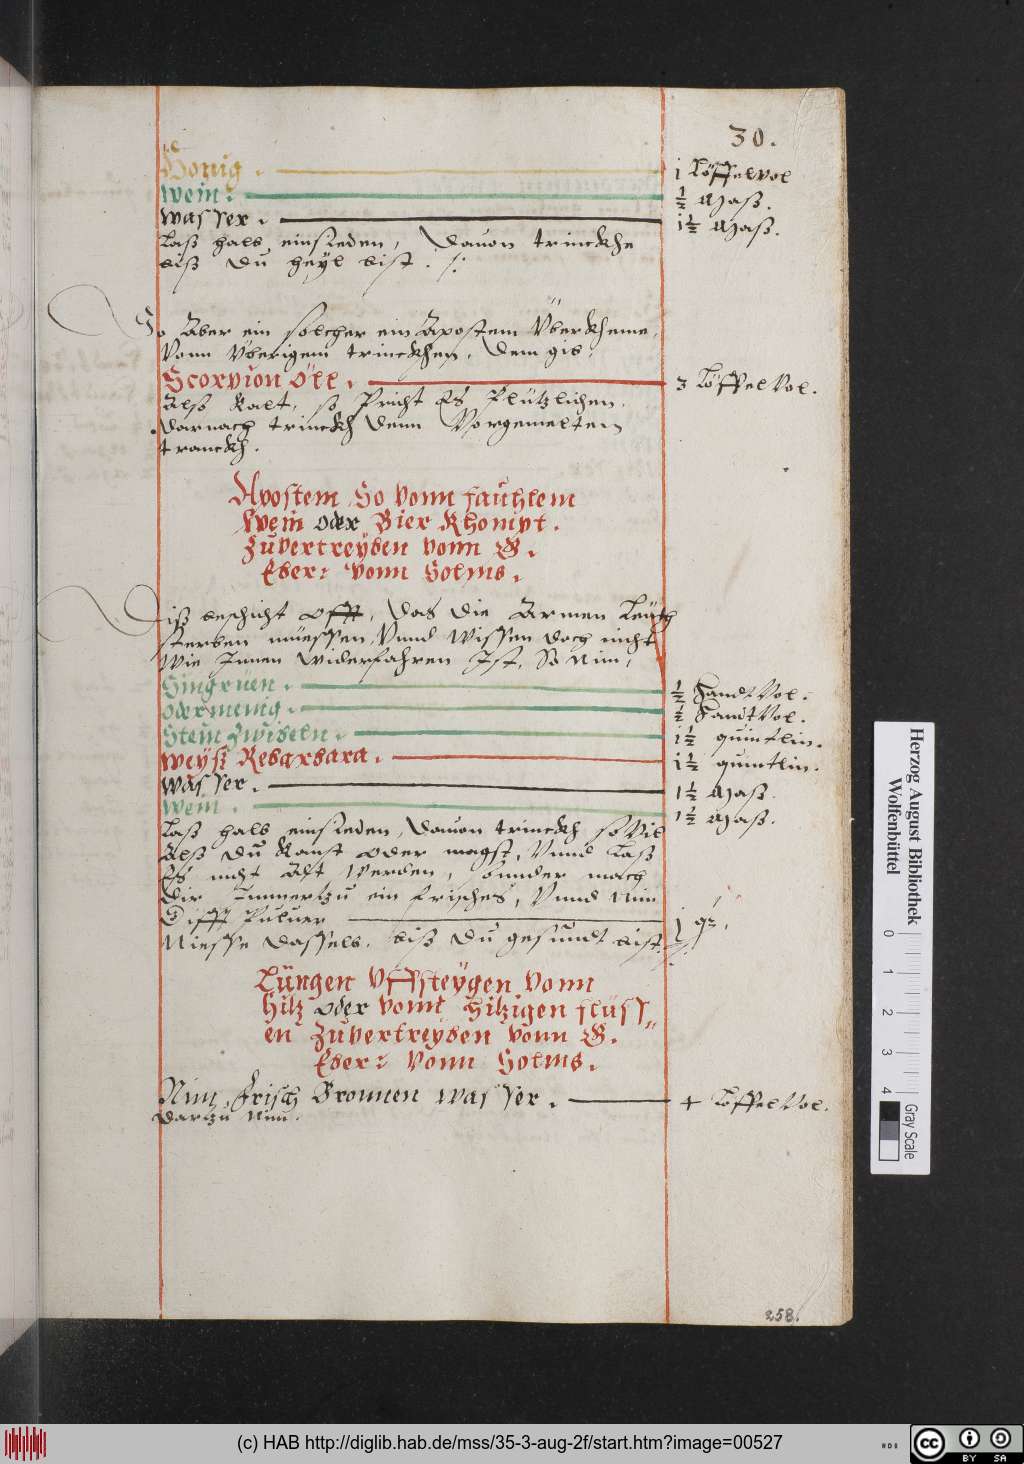 30.
Honig . j Löffelvol
Wein . ½ Maß.
Wasser . i½ Maß.
Laß halb einsieden, Dauon trinckhe
biß du heyl bist ./.
So Aber ein solcher ein Apostem Überkheme,
Vonn Überigem trinckhen, Dem gib,
Scorpion Öll . 3 Löffel Vol.
Alß Kalt, so Pricht Es Plützlichen.
Darnach trinckh Denn Vorgemelten
tranckh.
Apostem So Vonn faulhlem
Wein oder Bier Khompt.
Zuvertreyben vonn G.
Eber: Vonn Solms.
Diß beschicht offt, Das die Armen Leuth
sterben müessen, Vnnd Wissen doch nicht
Wie Innen Widerfahren Ist, So Nim,
Singrüen . ½ Handt Vol.
Odermenig . ½ Handt Vol.
Stein Zwibeln . i½ quintlin.
Weyß Rebarbara . i½ quintlin.
Wasser . 1½ Maß.
Wein . 1½ Maß.
Laß halb einsieden, Dauon trinckh so Vil
Alß du Kanst oder magst, Vnnd Laß
Es nicht Alt Werden, Sunder mach
Dir Immertzu ein frisches, Vnnd Nim
Gifft Puluer j qz.
Niesse dasselb, biß Du gesundt bist ./.
Lungen Vffsteygen Vonn
Hitz oder vonn Hitzigen flüss
en Zuvertreyben vonn G.
Eber: Vonn Solms.
Nim, Frisch Bronnen Wasser . 4 Löffel Vol.
Dartzu Nim.
258.
Herzog August Bibliothek
Wolfenbüttel
0 1 2 3 4
Gray Scale
(c) HAB http://diglib.hab.de/mss/35-3-aug-2f/start.htm?image=00527
cc BY SA